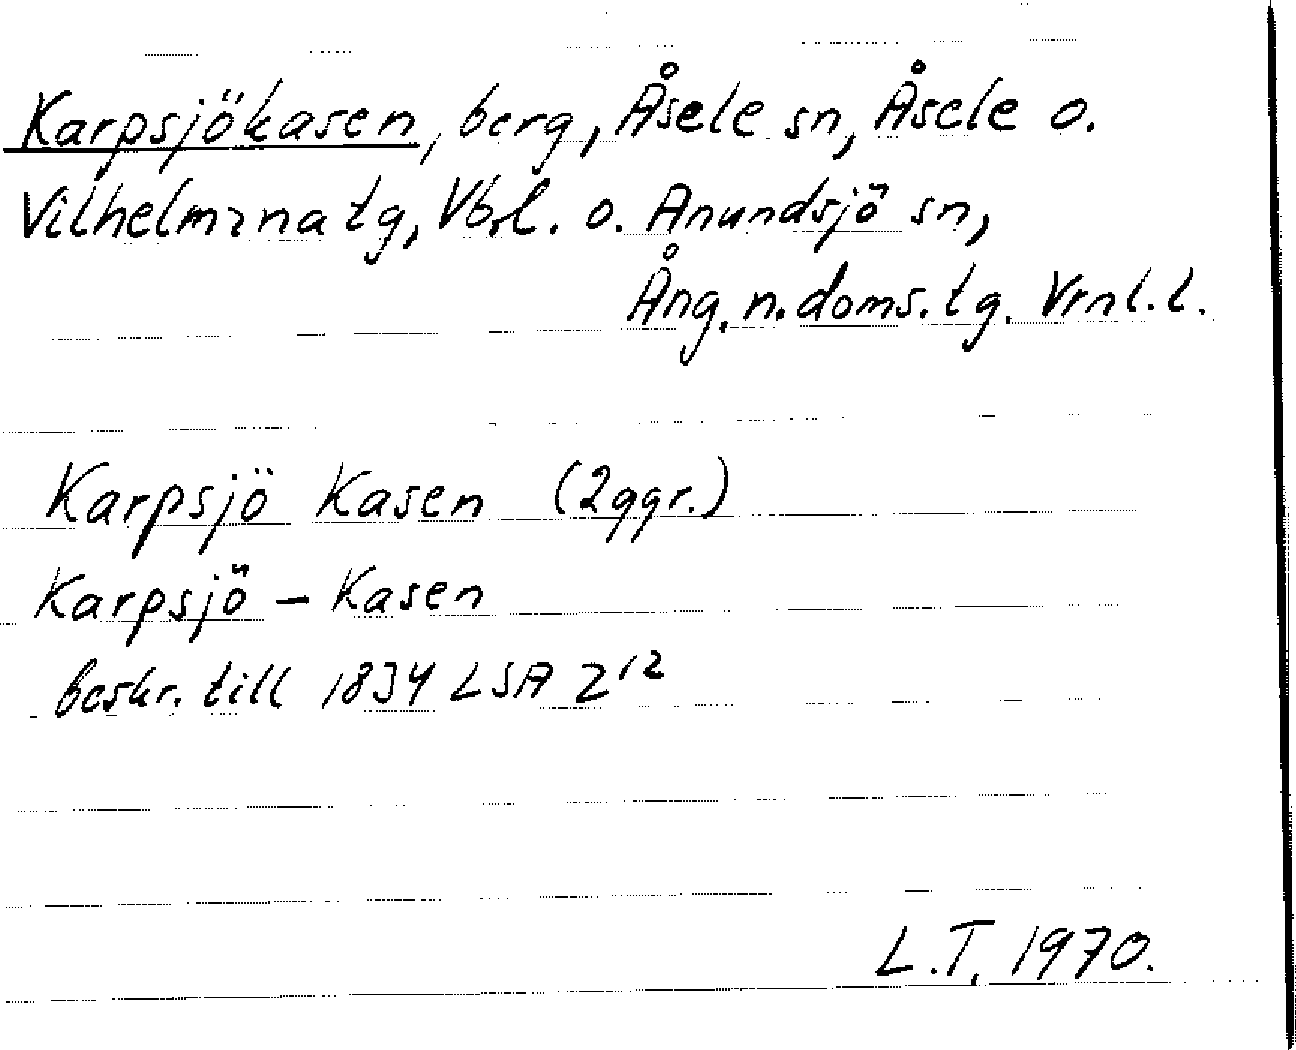 Karpsjökasen, berg, Åsele sn, Åsele o.
Vilhelmina tg, Vb.l. o. Anundsjö sn,
Ång. n. doms. tg. Vrnl. l.
Karpsjö Kasen (2ggr.)
Karpsjö - Kasen
beskr. till 1834 LSA Z¹²
L.T. 1970.